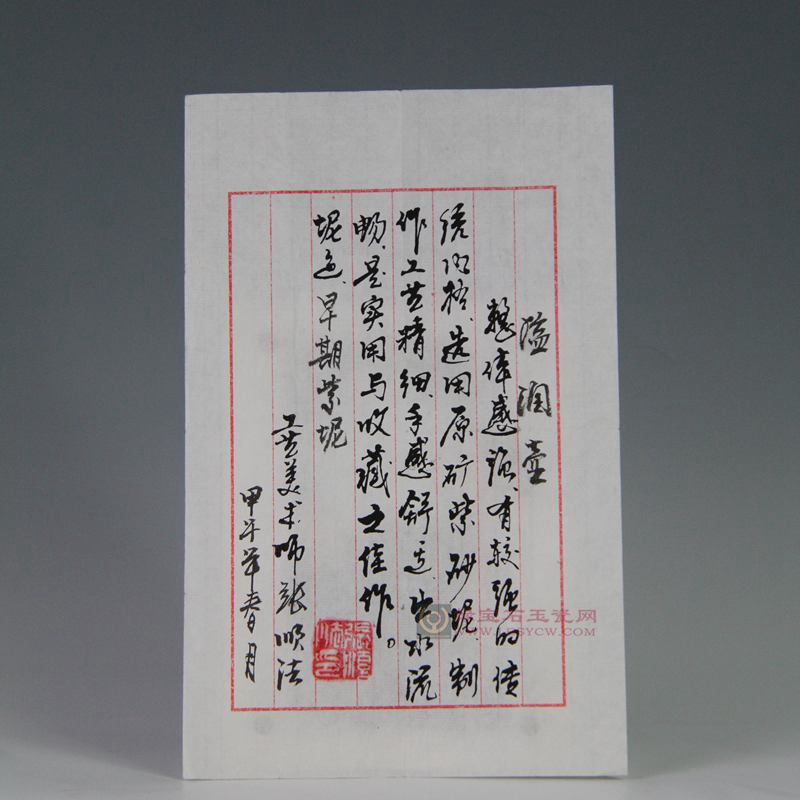 溢润壶
整体感强、有较强的传
统风格、选用原矿紫砂坭、制
作工艺精细、手感舒适、出水流
畅、是实用与收藏之佳作。
坭色、早期紫坭
工艺美术师張顺法
甲午年春月
宝石玉瓷网
SYCW.COM